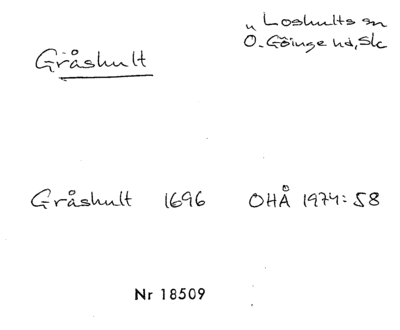 Loshults sn
Gråshult
Ö. Göinge hd, Sk
Gråshult 1696 OHÅ 1974: 58
Nr 18509